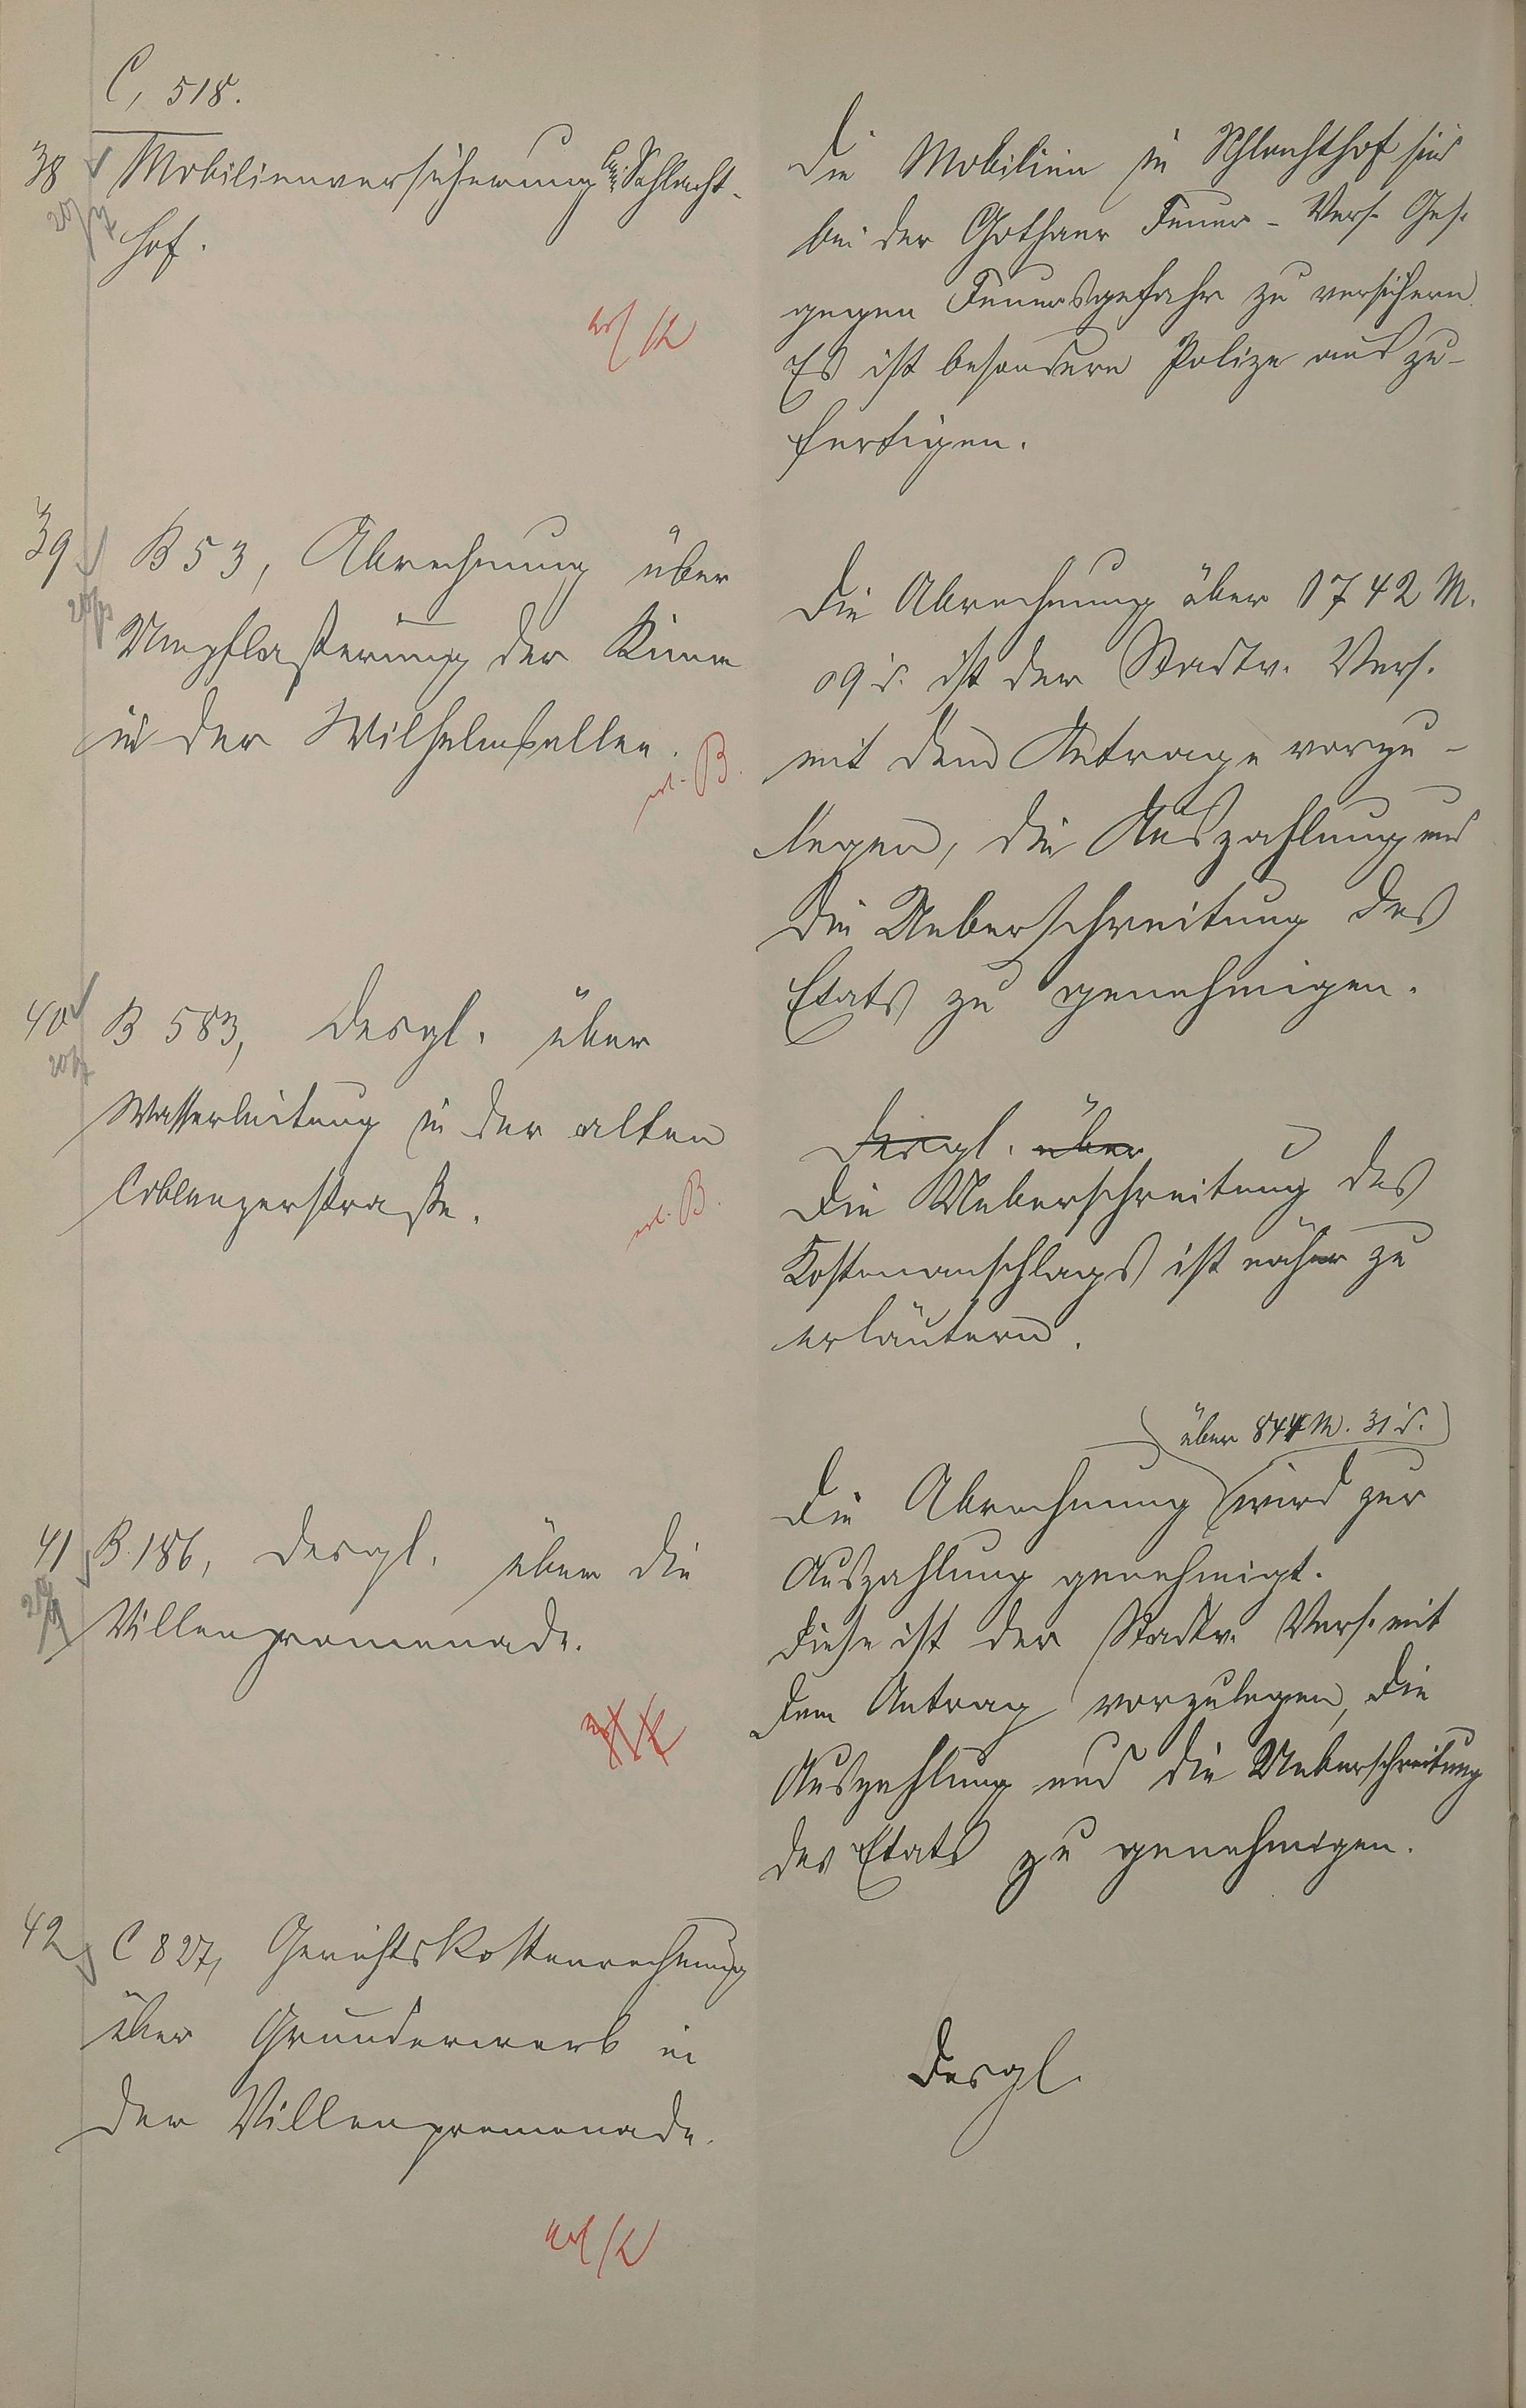 C, 518.
38 Mobilienversicherung beim Schlacht-
hof.
Die Mobilien im Schlachthof sind
bei der Gothaer Feuer-Vers. Ges.
gegen Feuersgefahr zu versichern.
Es ist besondere Polize auszu-
fertigen.
39 B 53, Abrechnung über
Umpflasterung der Rinne
in der Wilhelmsallee.
erl. B.
Die Abrechnung über 1742 M.
09 d. ist der Stadtv. Vers.
mit dem Antrage vorzu-
legen, die Auszahlung und
die Ueberschreitung des
Etats zu genehmigen.
40 B 583, desgl. über
Wasserleitung in der alten
Coblenzerstraße.
erl. B.
desgl. über
Die Ueberschreitung des
Kostenanschlags ist näher zu
erläutern.
über 844 M. 31 d.
Die Abrechnung wird zur
Auszahlung genehmigt.
41 B. 186, desgl. über die
Villenpromenade.
Diese ist der Stadtv. Vers. mit
dem Antrag vorzulegen, die
Auszahlung und die Ueberschreitung
des Etats zu genehmigen.
42 C 827, Gerichtskostenrechnung
über Grunderwerb in
der Villenpromenade.
Desgl.